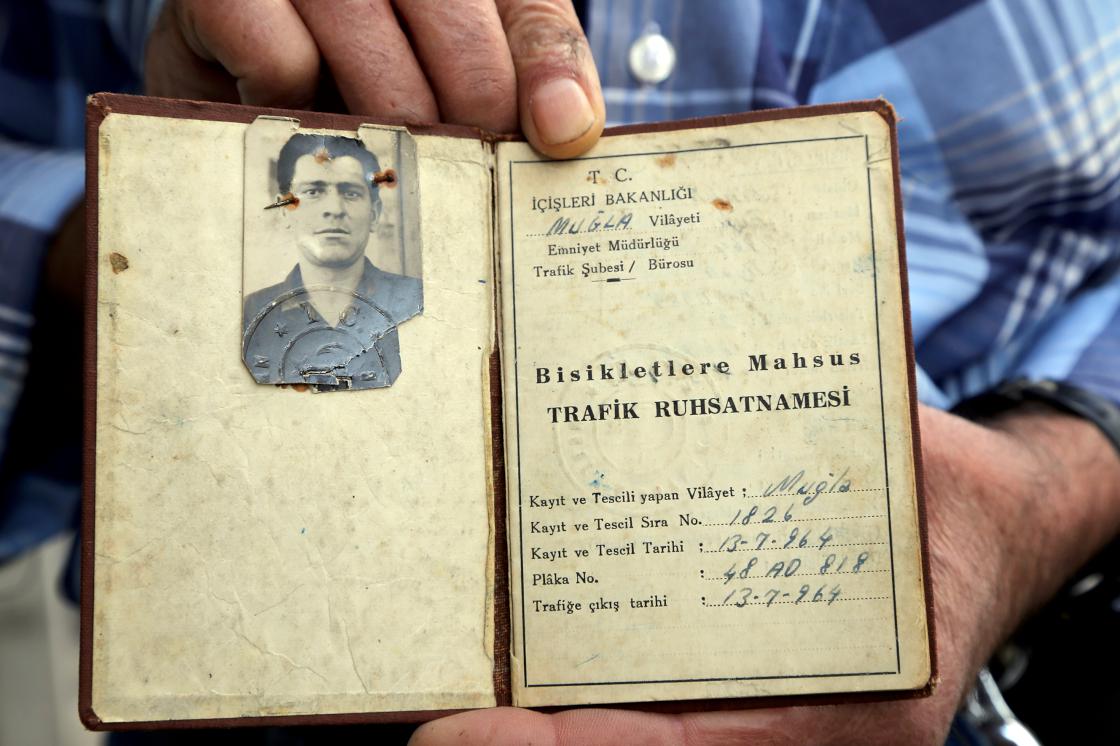 T. C.
İÇİŞLERİ BAKANLIĞI
MUĞLA Vilâyeti
Emniyet Müdürlüğü
Trafik Şubesi / Bürosu
Bisikletlere Mahsus
TRAFİK RUHSATNAMESİ
Kayıt ve Tescili yapan Vilâyet : Muğla
Kayıt ve Tescil Sıra No. 1826
Kayıt ve Tescil Tarihi : 13-7-964
Plâka No. : 48 AD 818
Trafiğe çıkış tarihi : 13-7-964